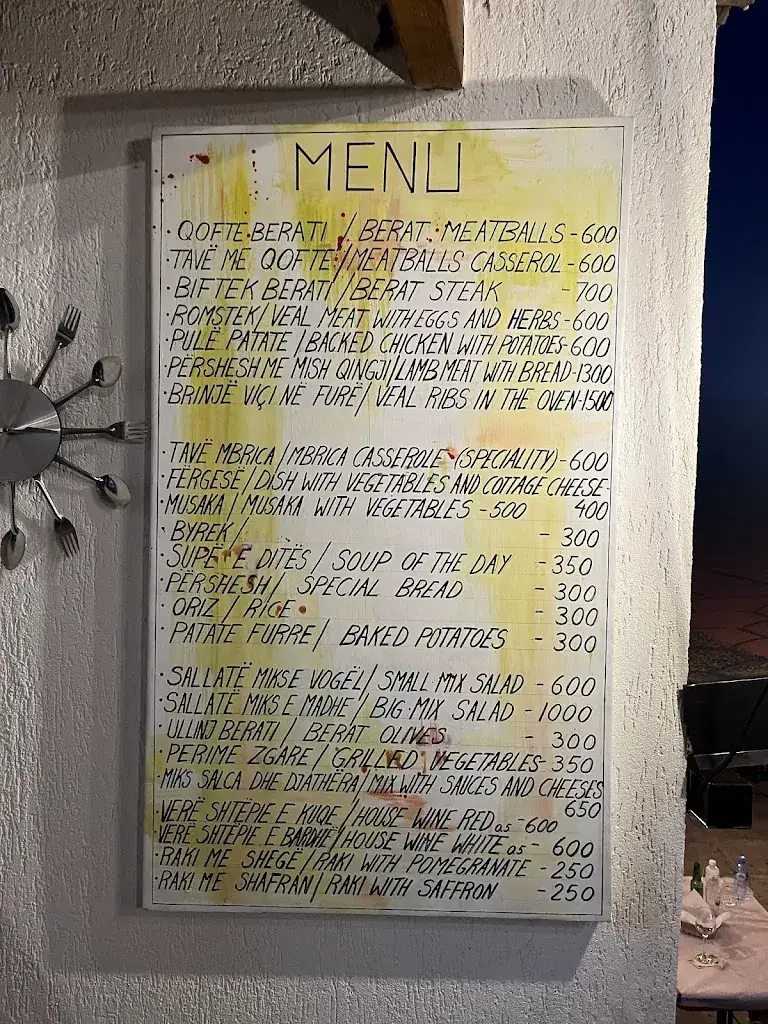 MENU
· QOFTE BERATI / BERAT MEATBALLS - 600
· TAVË ME QOFTE / MEATBALLS CASSEROL - 600
· BIFTEK BERATI / BERAT STEAK - 700
· ROMSTEK / VEAL MEAT WITH EGGS AND HERBS - 600
· PULË PATATE / BACKED CHICKEN WITH POTATOES - 600
· PËRSHESH ME MISH QINGJI / LAMB MEAT WITH BREAD - 1300
· BRINJË VIÇI NË FURË / VEAL RIBS IN THE OVEN - 1500
· TAVË MBRICA / MBRICA CASSEROLE (SPECIALITY) - 600
· FËRGESË / DISH WITH VEGETABLES AND COTTAGE CHEESE -
400
· MUSAKA / MUSAKA WITH VEGETABLES - 500
· BYREK / - 300
· SUPË E DITËS / SOUP OF THE DAY - 350
· PËRSHESH / SPECIAL BREAD - 300
· ORIZ / RICE - 300
· PATATE FURRE / BAKED POTATOES - 300
· SALLATË MIKS E VOGËL / SMALL MIX SALAD - 600
· SALLATË MIKS E MADHE / BIG MIX SALAD - 1000
· ULLINJ BERATI / BERAT OLIVES - 300
· PERIME ZGARE / GRILLED VEGETABLES - 350
· MIKS SALCA DHE DJATHËRA / MIX WITH SAUCES AND CHEESES
650
· VERË SHTËPIE E KUQE / HOUSE WINE RED as - 600
· VERË SHTËPIE E BARDHË / HOUSE WINE WHITE as - 600
· RAKI ME SHEGË / RAKI WITH POMEGRANATE - 250
· RAKI ME SHAFRAN / RAKI WITH SAFFRON - 250